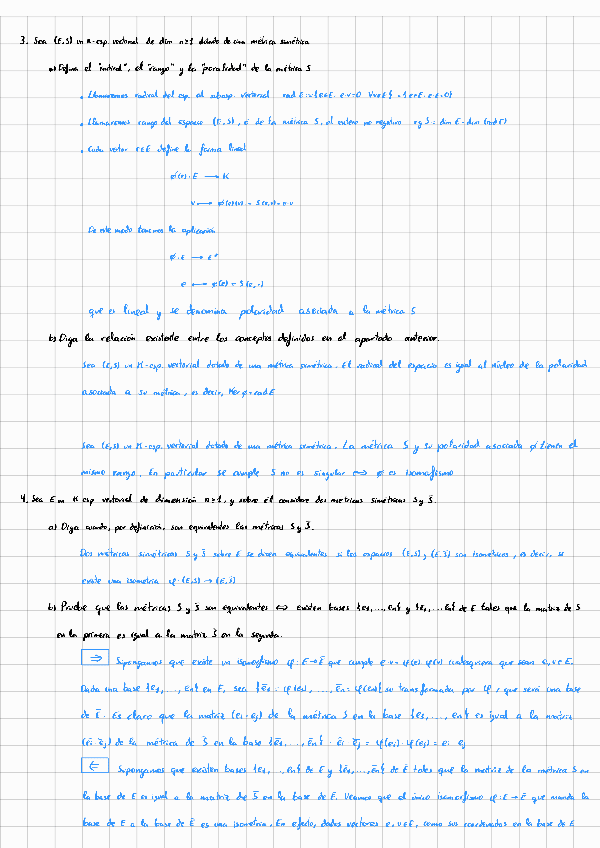 3. Sea (E,S) un K-esp. vectorial de dim n≥1 dotado de una métrica simétrica
a) Defina el "radical", el "rango" y la "polaridad" de la métrica S
• Llamaremos radical del esp. al subesp. vectorial rad E = {e∈E. e·v=0 ∀v∈E} = {e∈E. e·E=0}
• Llamaremos rango del espacio (E,S), o de la métrica S, al entero no negativo rg S = dim E - dim (rad E)
• Cada vector e∈E define la forma lineal
ϕ(e): E → K
v ⟼ ϕ(e)(v) = S(e,v) = e·v
De este modo tenemos la aplicación
ϕ: E → E*
e ⟼ ϕ(e) = S(e,·)
que es lineal y se denomina polaridad asociada a la métrica S
b) Diga la relación existente entre los conceptos definidos en el apartado anterior.
Sea (E,S) un K-esp. vectorial dotado de una métrica simétrica. El radical del espacio es igual al núcleo de la polaridad
asociada a su métrica, es decir, Ker ϕ = rad E
Sea (E,S) un K-esp. vectorial dotado de una métrica simétrica. La métrica S y su polaridad asociada ϕ tienen el
mismo rango. En particular se cumple S no es singular ⟺ ϕ es isomorfismo
4. Sea E un K esp vectorial de dimensión n≥1, y sobre él considere dos métricas simétricas S y S̄.
a) Diga cuando, por definición, son equivalentes las métricas S y S̄.
Dos métricas simétricas S y S̄ sobre E se dicen equivalentes si los espacios (E,S), (E,S̄) son isométricos, es decir, si
existe una isometría φ: (E,S) → (E,S̄)
b) Pruebe que las métricas S y S̄ son equivalentes ⟺ existen bases {e₁,...,en} y {ē₁,...,ēn} de E tales que la matriz de S
en la primera es igual a la matriz S̄ en la segunda.
⇒ Supongamos que existe un isomorfismo φ: E → Ē que cumple e·v = φ(e)·φ(v) cualesquiera que sean e,v∈E.
Dada una base {e₁,...,en} en E, sea {ē₁ = φ(e₁),...,ēn = φ(en)} su transformada por φ, que será una base
de Ē. Es claro que la matriz (ei·ej) de la métrica S en la base {e₁,...,en} es igual a la matriz
(ēi·ēj) de la métrica de S̄ en la base {ē₁,...,ēn} · ēi·ēj = φ(ei)·φ(ej) = ei·ej
⇐ Supongamos que existen bases {e₁,...,en} de E y {ē₁,...,ēn} de Ē tales que la matriz de la métrica S en
la base de E es igual a la matriz de S̄ en la base de Ē. Veamos que el único isomorfismo φ: E → Ē que manda la
base de E a la base de Ē es una isometría. En efecto, dados vectores e,v∈E, como sus coordenadas en la base de E